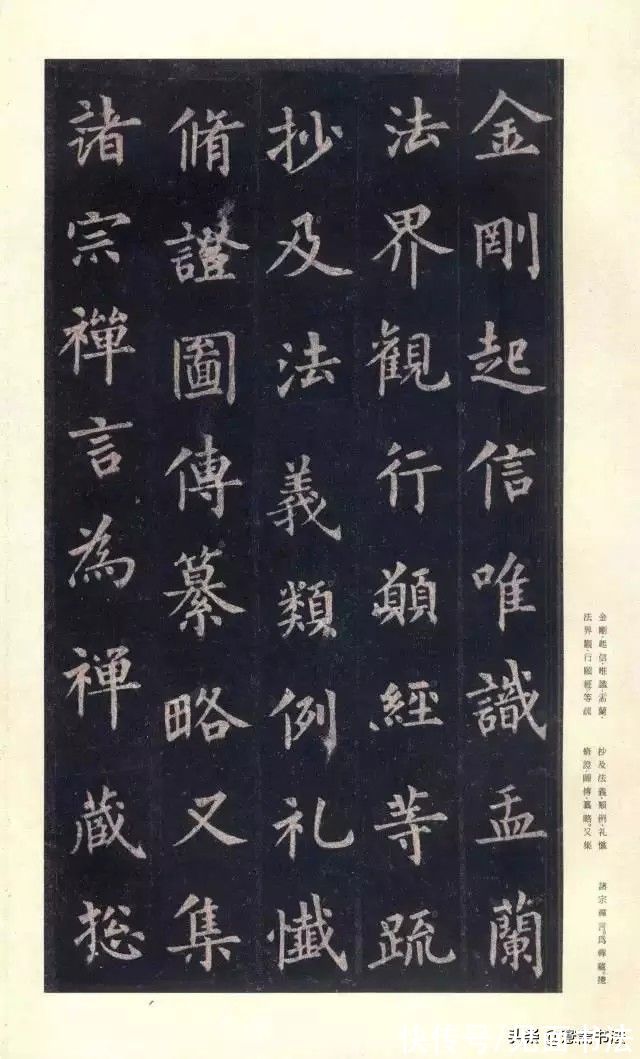 金剛起信唯識盂蘭
法界觀行願經等疏
抄及法義類例礼懺
脩證圖傳纂略又集
諸宗禪言為禪藏捴
金剛·起信·唯識·盂蘭·
法界觀·行願經等疏
抄及法義類例·礼懺
脩證·圖傳·纂略。又集
諸宗禪言。爲禪藏。捴